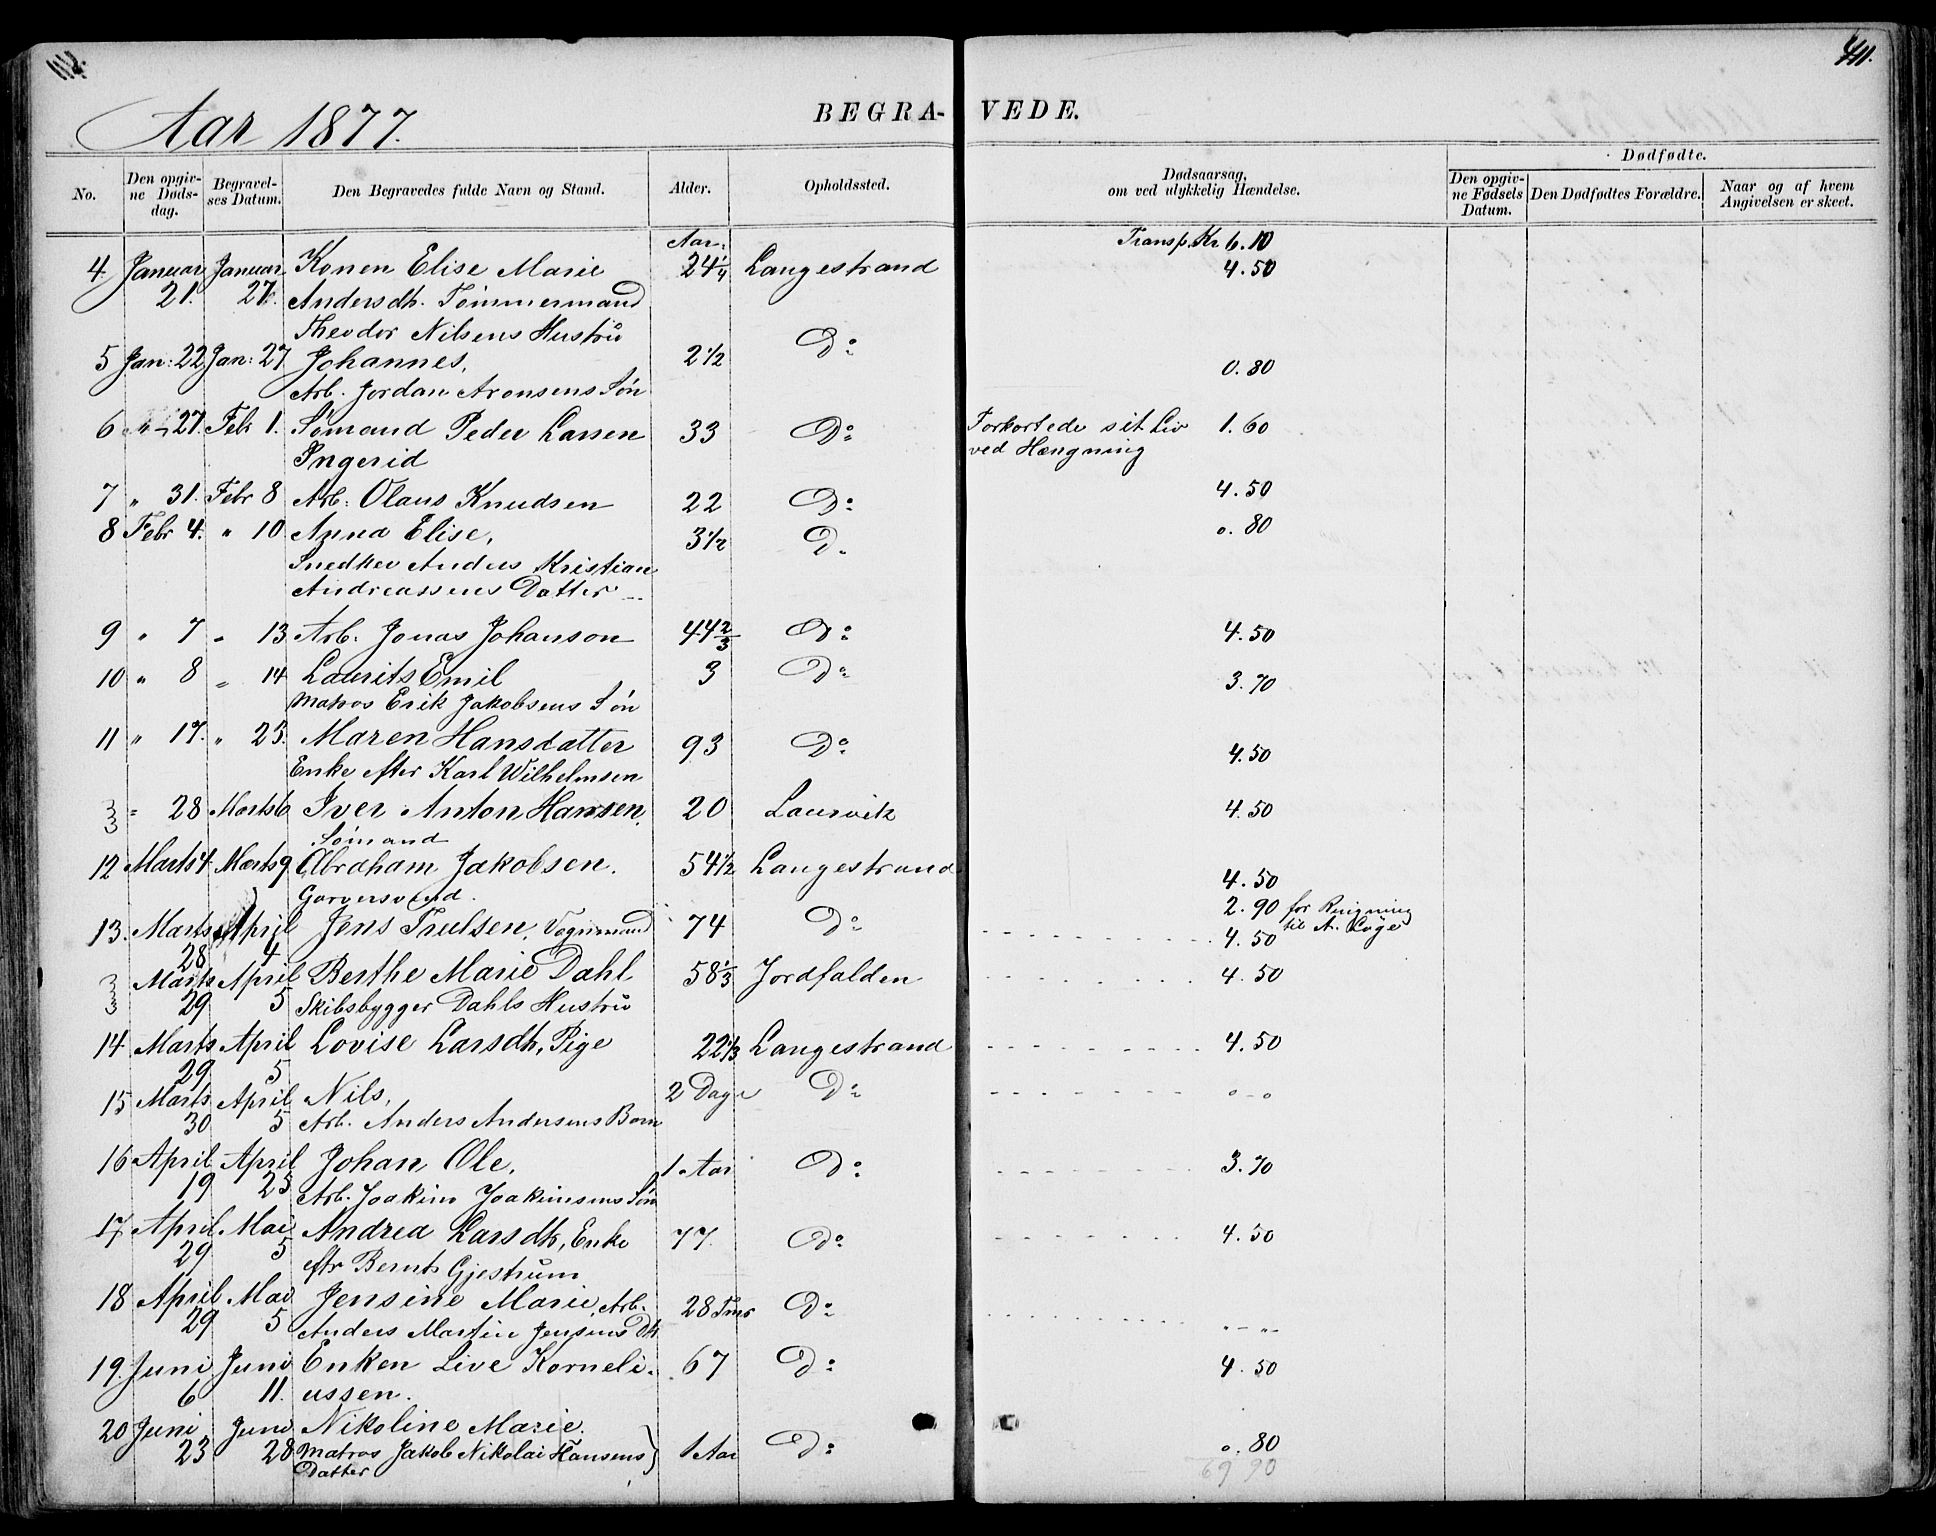 Aar 1877.
BEGRA- VEDE.
No.
Den opgivne Dødsdag.
Begravelses Datum.
Den Begravedes fulde Navn og Stand.
Alder.
Opholdssted.
Dødsaarsag, om ved ulykkelig Hændelse.
Dødfødte.
Den opgivne Fødsels Datum.
Den Dødfødtes Forældre.
Naar og af hvem Angivelsen er skeet.
Aar. Transp. Kr 6.10
4. Januar Januar Konen Elise Marie 24 1/4 Langestrand 4.50
21. 27. Andersdtr. Tømmermand
Theodor Nilsens Hustrü
5 Jan: 22 Jan: 27 Johannes, 2 1/2 Do 0.80
Arb. Jordan Aronsens Søn
6 27. Feb 1. Sømand Peder Larsen 33 Do Forkortede sit Liv 1.60
Ingerid ved Hængning
7 " 31. Febr 8 Arb: Olaus Knudsen 22 Do 4.50
8 Febr 4. " 10 Anna Elise, 3 1/2 D. 0.80
Snedker Anders Kristian
Andreassens Datter
9 " 7 " 13 Arb. Jonas Johanson 44 2/3 Do 4.50
10 " 8 " 14 Laurits Emil 3 Do 3.70
Matros Erik Jakobsens Søn
11 " 17. " 23. Maren Hansdatter 93 Do 4.50
Enke efter Karl Wilhelmsen
3/3 = 28 Marts 6 Iver Anton Hansen, 20 Laurvik 4.50
Sømand
12 Marts 4 Marts 9 Abraham Jakobsen. 54 1/2 Langestrand 4.50
Garversvend. 2.90 for Ringning
13. Marts April Jens Trulsen, Vognmand 74 Do 4.50 til A. Løge
28 4
3/3 Marts April Berthe Marie Dahl 58 1/3 Jordfalden 4.50
29 5 Skibsbygger Dahls Hustrü
14 Marts April Lovise Larsdtr, Pige 22 1/3 Langestrand 4.50
29 5
15 Marts April Nils, 2 Dage Do o-o
30 5 Arb. Anders Andersens Barn
16 April April Johan Ole, 1 Aar Do 3.70
19 25 Arb. Joakim Joakimsens Søn
17 April Mai Andrea Larsdtr, Enke 77. Do 4.50
29 5 eftr Bernt Gjestrüm
18 April Mai Jensine Marie, Arb. 28 Tmr Do "-"-
29 5 Anders Martin Jensens Dtr
19. Juni Juni Enken Live Korneli- 67 Do 4.50
6 11. ussen.
20 Juni Juni Nikoline Marie. 1 Aar Do 0.80
23 28 Matros Jakob Nikolai Hansens
Datter 69 90